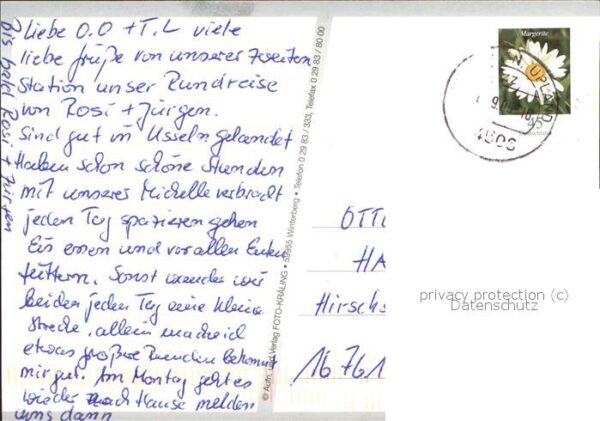 Liebe O.O + T.L viele
liebe Grüße von unserer zweiten
Station unser Rundreise
von Rosi + Jürgen.
Sind gut in Usseln gelandet
Haben schon schöne Stunden
mit unserer Michelle verbracht
jeden Tag spazieren gehen
Eis essen und vor allen Enten
füttern. Sonst wander wir
beiden jeden Tag eine kleine
Strecke, allein mache ich
etwas größere Runden bekommt
mir gut. Am Montag geht es
wieder nach Hause melden
uns dann
bis bald Rosi + Jürgen
© Aufn. und Verlag FOTO-KRÄLING • 59955 Winterberg • Telefon 0 29 83 / 333, Telefax 0 29 83 / 80 00
Margerite
UPLAND
4806
OTTO
HA
Hirsch
16761
privacy protection (c)
Datenschutz